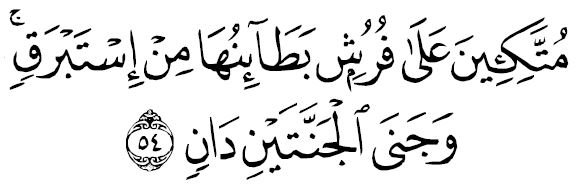 مُتَّكِـِٔينَ عَلَىٰ فُرُشٍۭ بَطَآئِنُهَا مِنْ إِسْتَبْرَقٍۢ ۚ
وَجَنَى ٱلْجَنَّتَيْنِ دَانٍ ﴿٥٤﴾